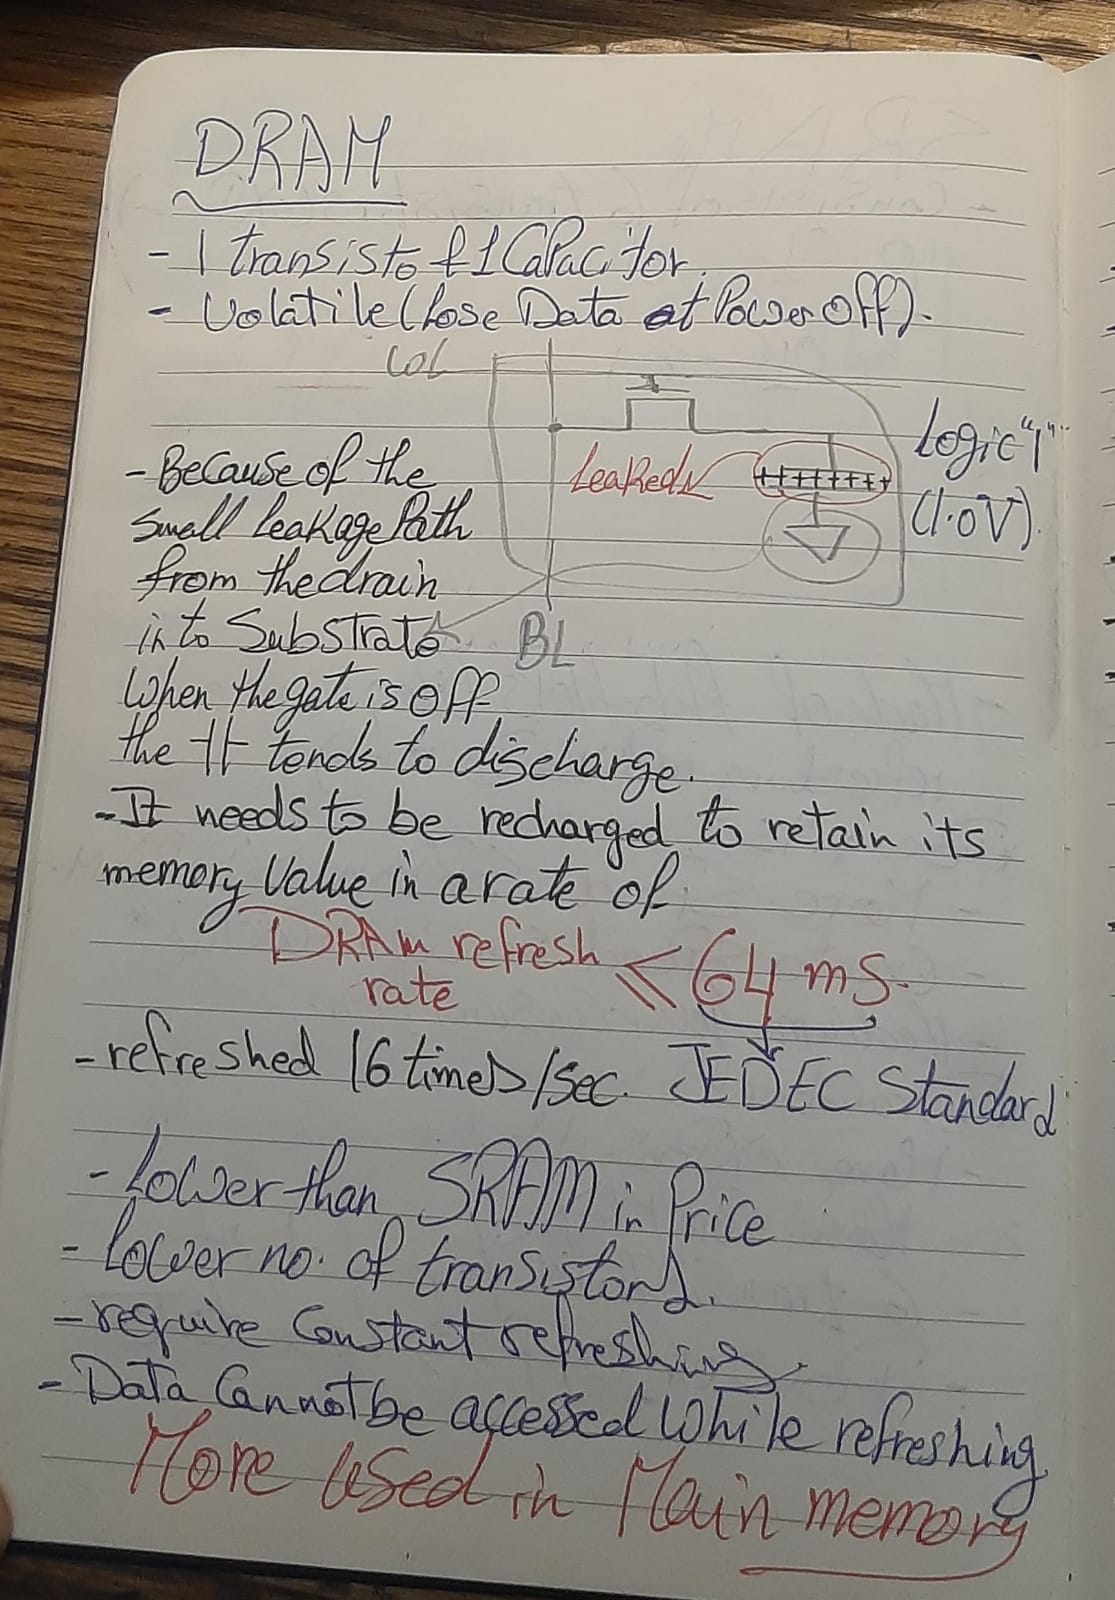 DRAM
- 1 transisto & 1 Capacitor.
- Volatile (lose Data at Power Off).
WL
Logic "1"
(1.0V).
leaked
- Because of the
Small leakage Path
from the drain
into Substrate
BL
When the gate is Off
the ⊣⊢ tends to discharge.
- It needs to be recharged to retain its
memory Value in a rate of
DRAM refresh
rate
≤ 64 ms.
- refreshed 16 times/sec. JEDEC Standard
- Lower than SRAM in Price
- lower no. of transistors.
- require Constant refreshing.
- Data Cannot be accessed While refreshing
More Used in Main memory